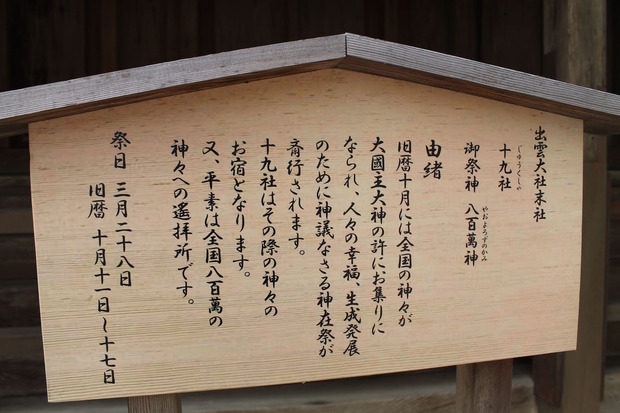 出雲大社末社
十九社
じゅうくしゃ
御祭神 八百萬神
やおよろずのかみ
由緒
旧暦十月には全国の神々が
大國主大神の許にお集りに
なられ、人々の幸福、生成発展
のために神議なさる神在祭が
斎行されます。
十九社はその際の神々の
お宿となります。
又、平素は全国八百萬の
神々への遙拝所です。
祭日 三月二十八日
旧暦 十月十一日〜十七日